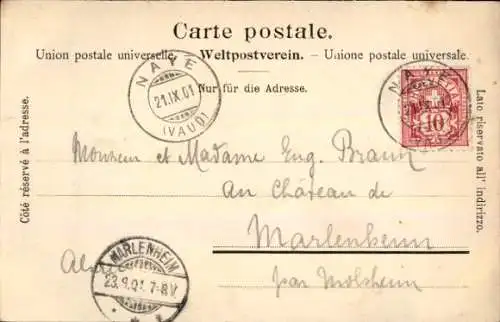 Carte postale.
Union postale universelle. - Weltpostverein. - Unione postale universale.
Nur für die Adresse.
Côté réservé à l'adresse.
Lato riservato all' indirizzo.
NAYE
21.IX.01
(VAUD)
NAYE
10
Monsieur et Madame Eug. Braun
au Château de
Marlenheim
par Molsheim
MARLENHEIM
23.9.01. 7-8.V.